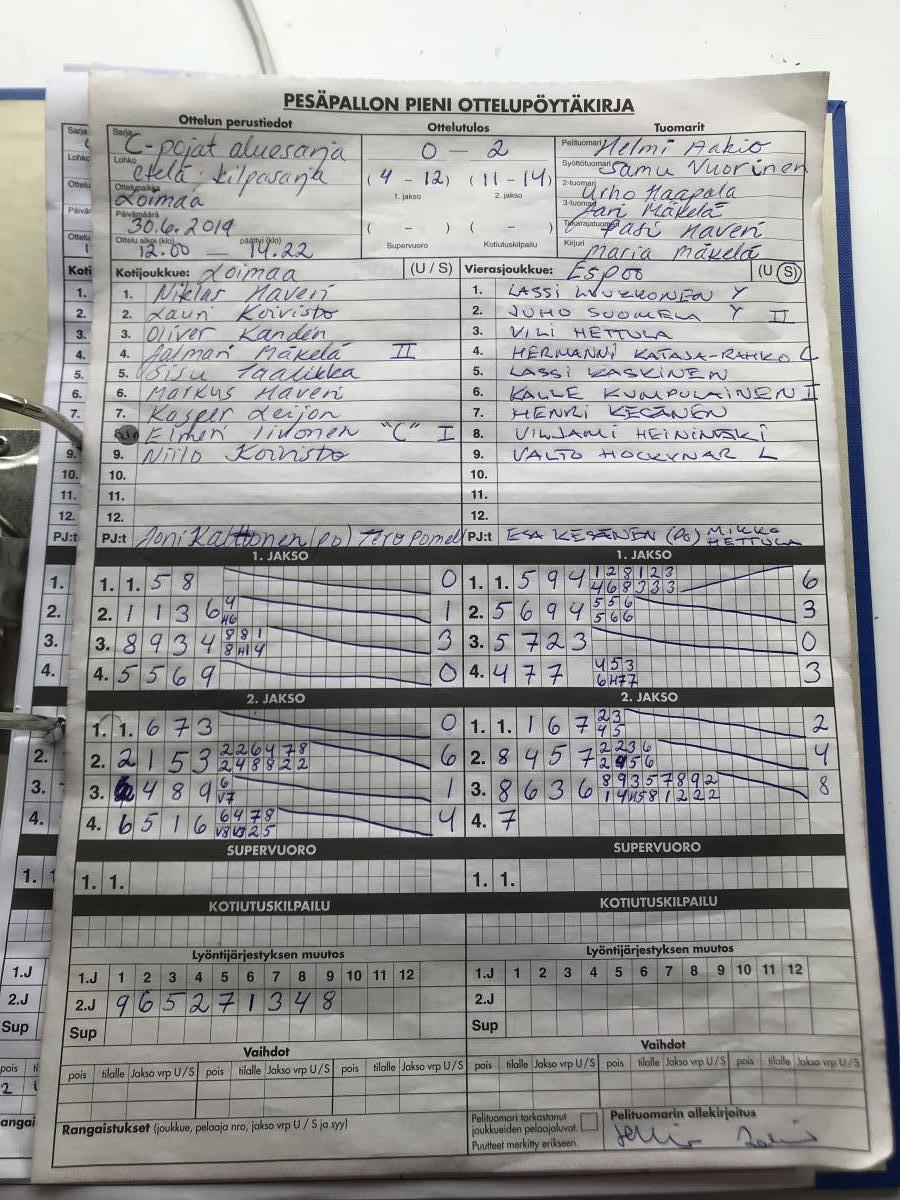 PESÄPALLON PIENI OTTELUPÖYTÄKIRJA
Ottelun perustiedot
Ottelutulos
Tuomarit
Sarja C-pojat aluesarja
Lohko etelä: kilpasarja
Ottelupaikka Loimaa
Päivämäärä 30.6.2019
Ottelu alkoi (klo) 12.00 — päättyi (klo) 14.22
0 — 2
(4 - 12) (11 - 14)
1. jakso 2. jakso
( - ) ( - )
Supervuoro Kotiutuskilpailu
Pelituomari Helmi Aakio
Syöttötuomari Samu Vuorinen
2-tuomari Urho Haapala
3-tuomari Jari Mäkelä
Takarajatuomari Pasi Haveri
Kirjuri Maria Mäkelä
Kotijoukkue: Loimaa (U / S)
1. Niklas Haveri
2. Lauri Koivisto
3. Oliver Kanden
4. Jalmari Mäkelä II
5. Sisu Taalikka
6. Markus Haveri
7. Kasper Leijon
Elmeri Iivonen "C" I
9. Niilo Koivisto
10.
11.
12.
PJ:t Joni Kalttonen (po) Tero
Vierasjoukkue: ESPOO (U / S)
1. LASSI LIUKKONEN Y
2. JUHO SUOMELA Y II
3. VILI HETTULA
4. HERMANNI KATAJA-RAHKO C
5. LASSI KASKINEN
6. KALLE KUMPULAINEN I
7. HENRI KESÄNEN
8. VILJAMI HEININSKI
9. VALTO HOCKYNAR L
10.
11.
12.
PJ:t ESA KESÄNEN (PO) MIKKO HETTULA
1. JAKSO
1. 1. 5 8 0
2. 1 1 3 6 4 H6 1
3. 8 9 3 4 8 8 1 8 H1 4 3
4. 5 5 6 9 0
1. JAKSO
1. 1. 5 9 4 1 2 8 1 2 3 4 6 8 3 3 3 6
2. 5 6 9 4 5 5 6 5 6 6 3
3. 5 7 2 3 0
4. 4 7 7 4 5 3 6 H7 7 3
2. JAKSO
1. 1. 6 7 3 0
2. 2 1 5 3 2 2 6 4 7 8 2 4 8 8 2 2 6
3. 4 8 9 6 V7 1
4. 6 5 1 6 6 4 7 8 V8 V3 2 5 4
2. JAKSO
1. 1. 1 6 7 2 3 4 5 2
2. 8 4 5 7 2 2 3 6 2 5 6 4
3. 8 6 3 6 8 9 3 5 7 8 9 2 8
4. 7
SUPERVUORO
1. 1.
SUPERVUORO
1. 1.
KOTIUTUSKILPAILU
KOTIUTUSKILPAILU
Lyöntijärjestyksen muutos
1.J 1 2 3 4 5 6 7 8 9 10 11 12
2.J 9 6 5 2 7 1 3 4 8
Sup
Lyöntijärjestyksen muutos
1.J 1 2 3 4 5 6 7 8 9 10 11 12
2.J
Sup
Vaihdot
pois tilalle Jakso vrp U / S pois tilalle Jakso vrp U / S pois tilalle Jakso vrp U / S
Vaihdot
pois tilalle Jakso vrp U / S pois tilalle Jakso vrp U / S pois tilalle Jakso vrp U / S
Rangaistukset (joukkue, pelaaja nro, jakso vrp U / S ja syy)
Pelituomari tarkastanut
joukkueiden pelaajaluvat.
Puutteet merkitty erikseen.
Pelituomarin allekirjoitus